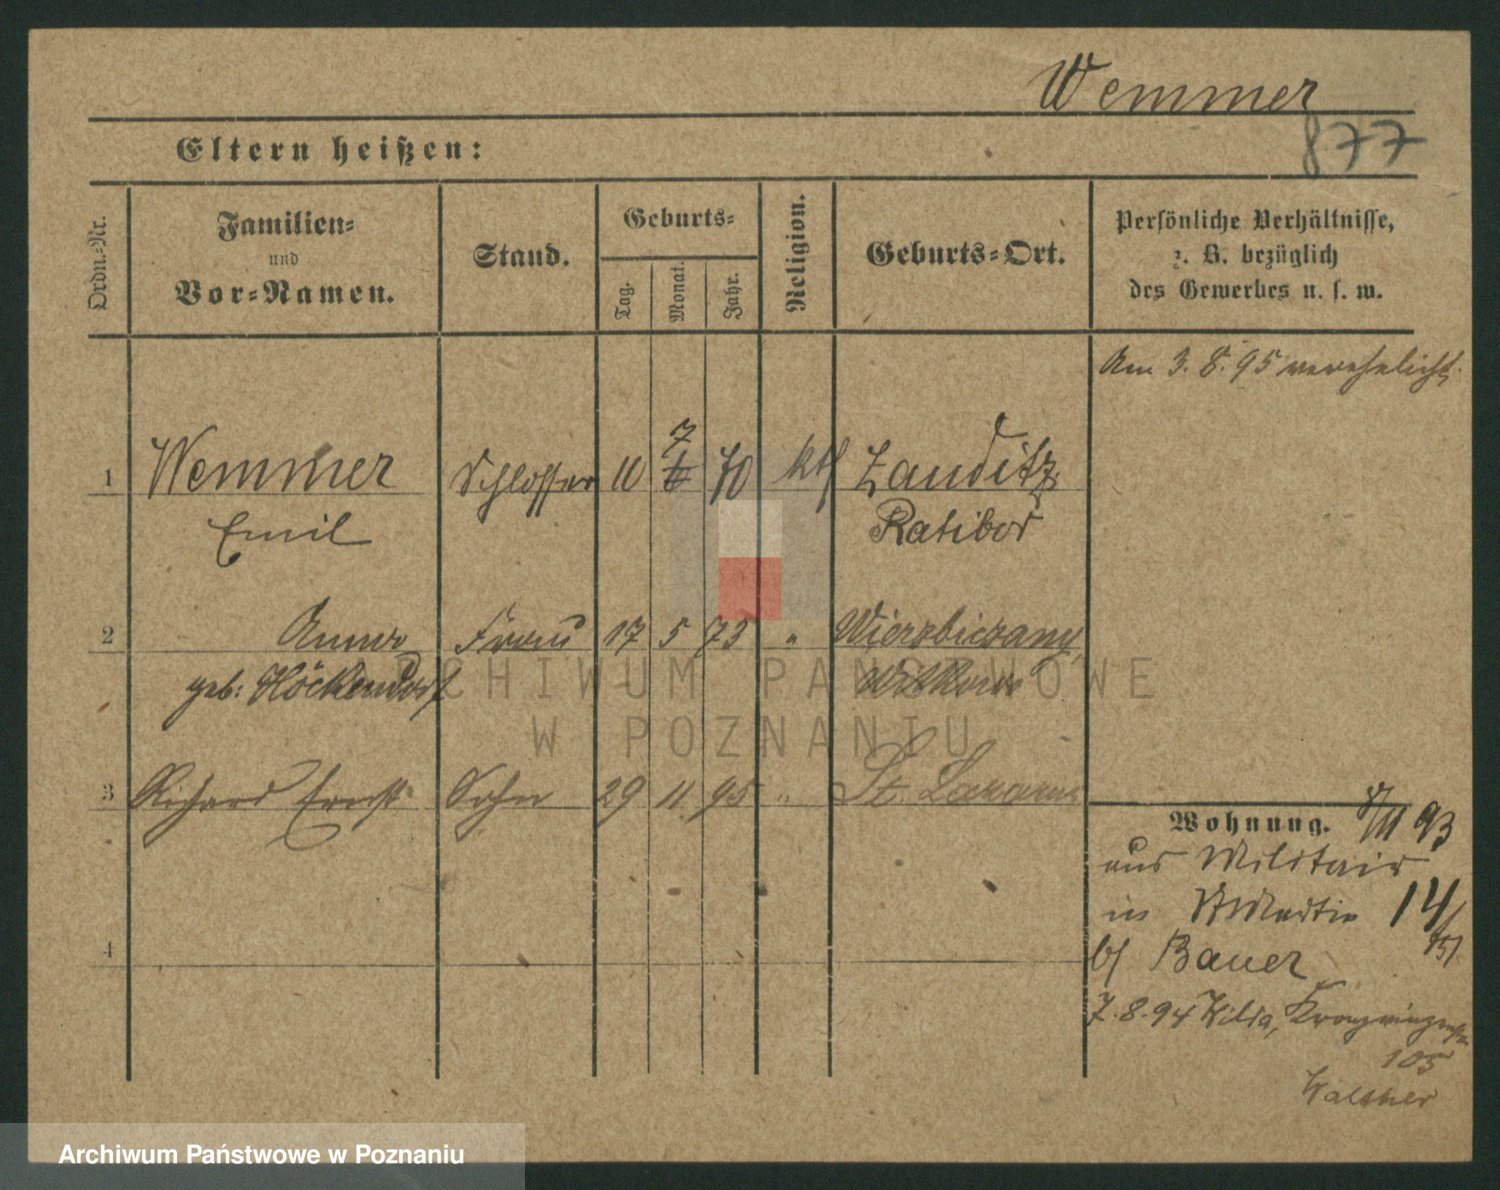 Wemmer
877
Eltern heißen:
Ordn.-Nr.
Familien-
und
Vor-Namen.
Stand.
Geburts-
Tag.
Monat.
Jahr.
Religion.
Geburts-Ort.
Persönliche Verhältnisse,
z. B. bezüglich
des Gewerbes u. s. w.
Am 3. 8. 95 verehelicht.
1 Wemmer Schlosser 10 7 70 ktl Zauditz
Emil Ratibor
2 Anna Frau 17 5 73 " Wierzbiczany
geb: Höckendorf Witkowo
3 Richard Ernst Sohn 29 11 95 " St. Lazarus
4
Wohnung. 8/11 93
aus Militair
in St Martin 14/
b/ Bauer
7. 8. 94 Wilda, Kronprinzenstr
105
Walther
ARCHIWUM PAŃSTWOWE
W POZNANIU
Archiwum Państwowe w Poznaniu